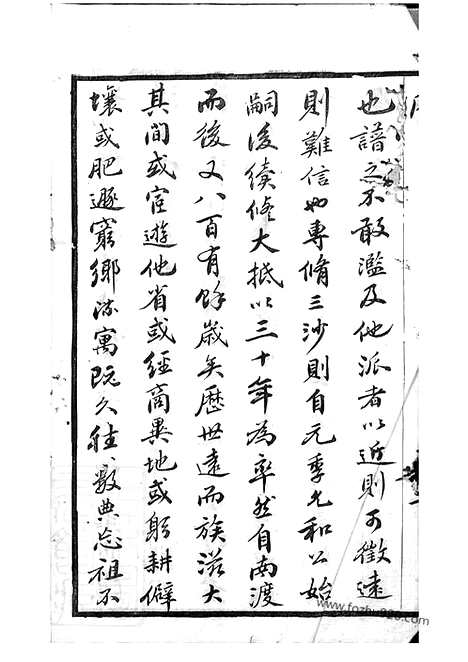 也譜之不敢濫及他派者以近則可徵遠
則難信也專脩三沙則自元季允和公始
嗣後續修大抵以三十年為率然自南渡
而後又八百有餘歲矣歷世遠而族滋大
其間或宦遊他省或經商異地或躬耕僻
壤或肥遯窮鄉流寓既久往往數典忘祖不
www.fozhu920.com